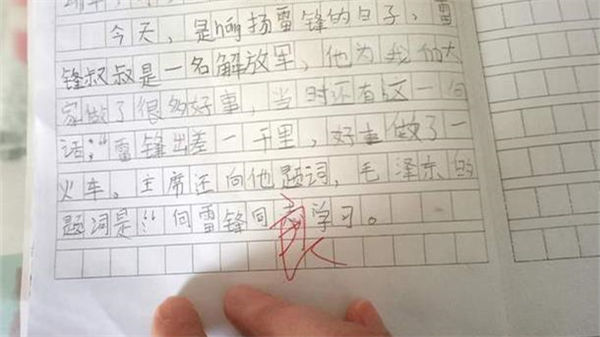 今天，是hóng扬雷锋的日子，雷
锋叔叔是一名解放军，他为我们大
家做了很多好事，当时还有这一句
话；“雷锋出差一千里，好事做了一
火车。主席还向他题词，毛泽东的
题词是“向雷锋同志学习。